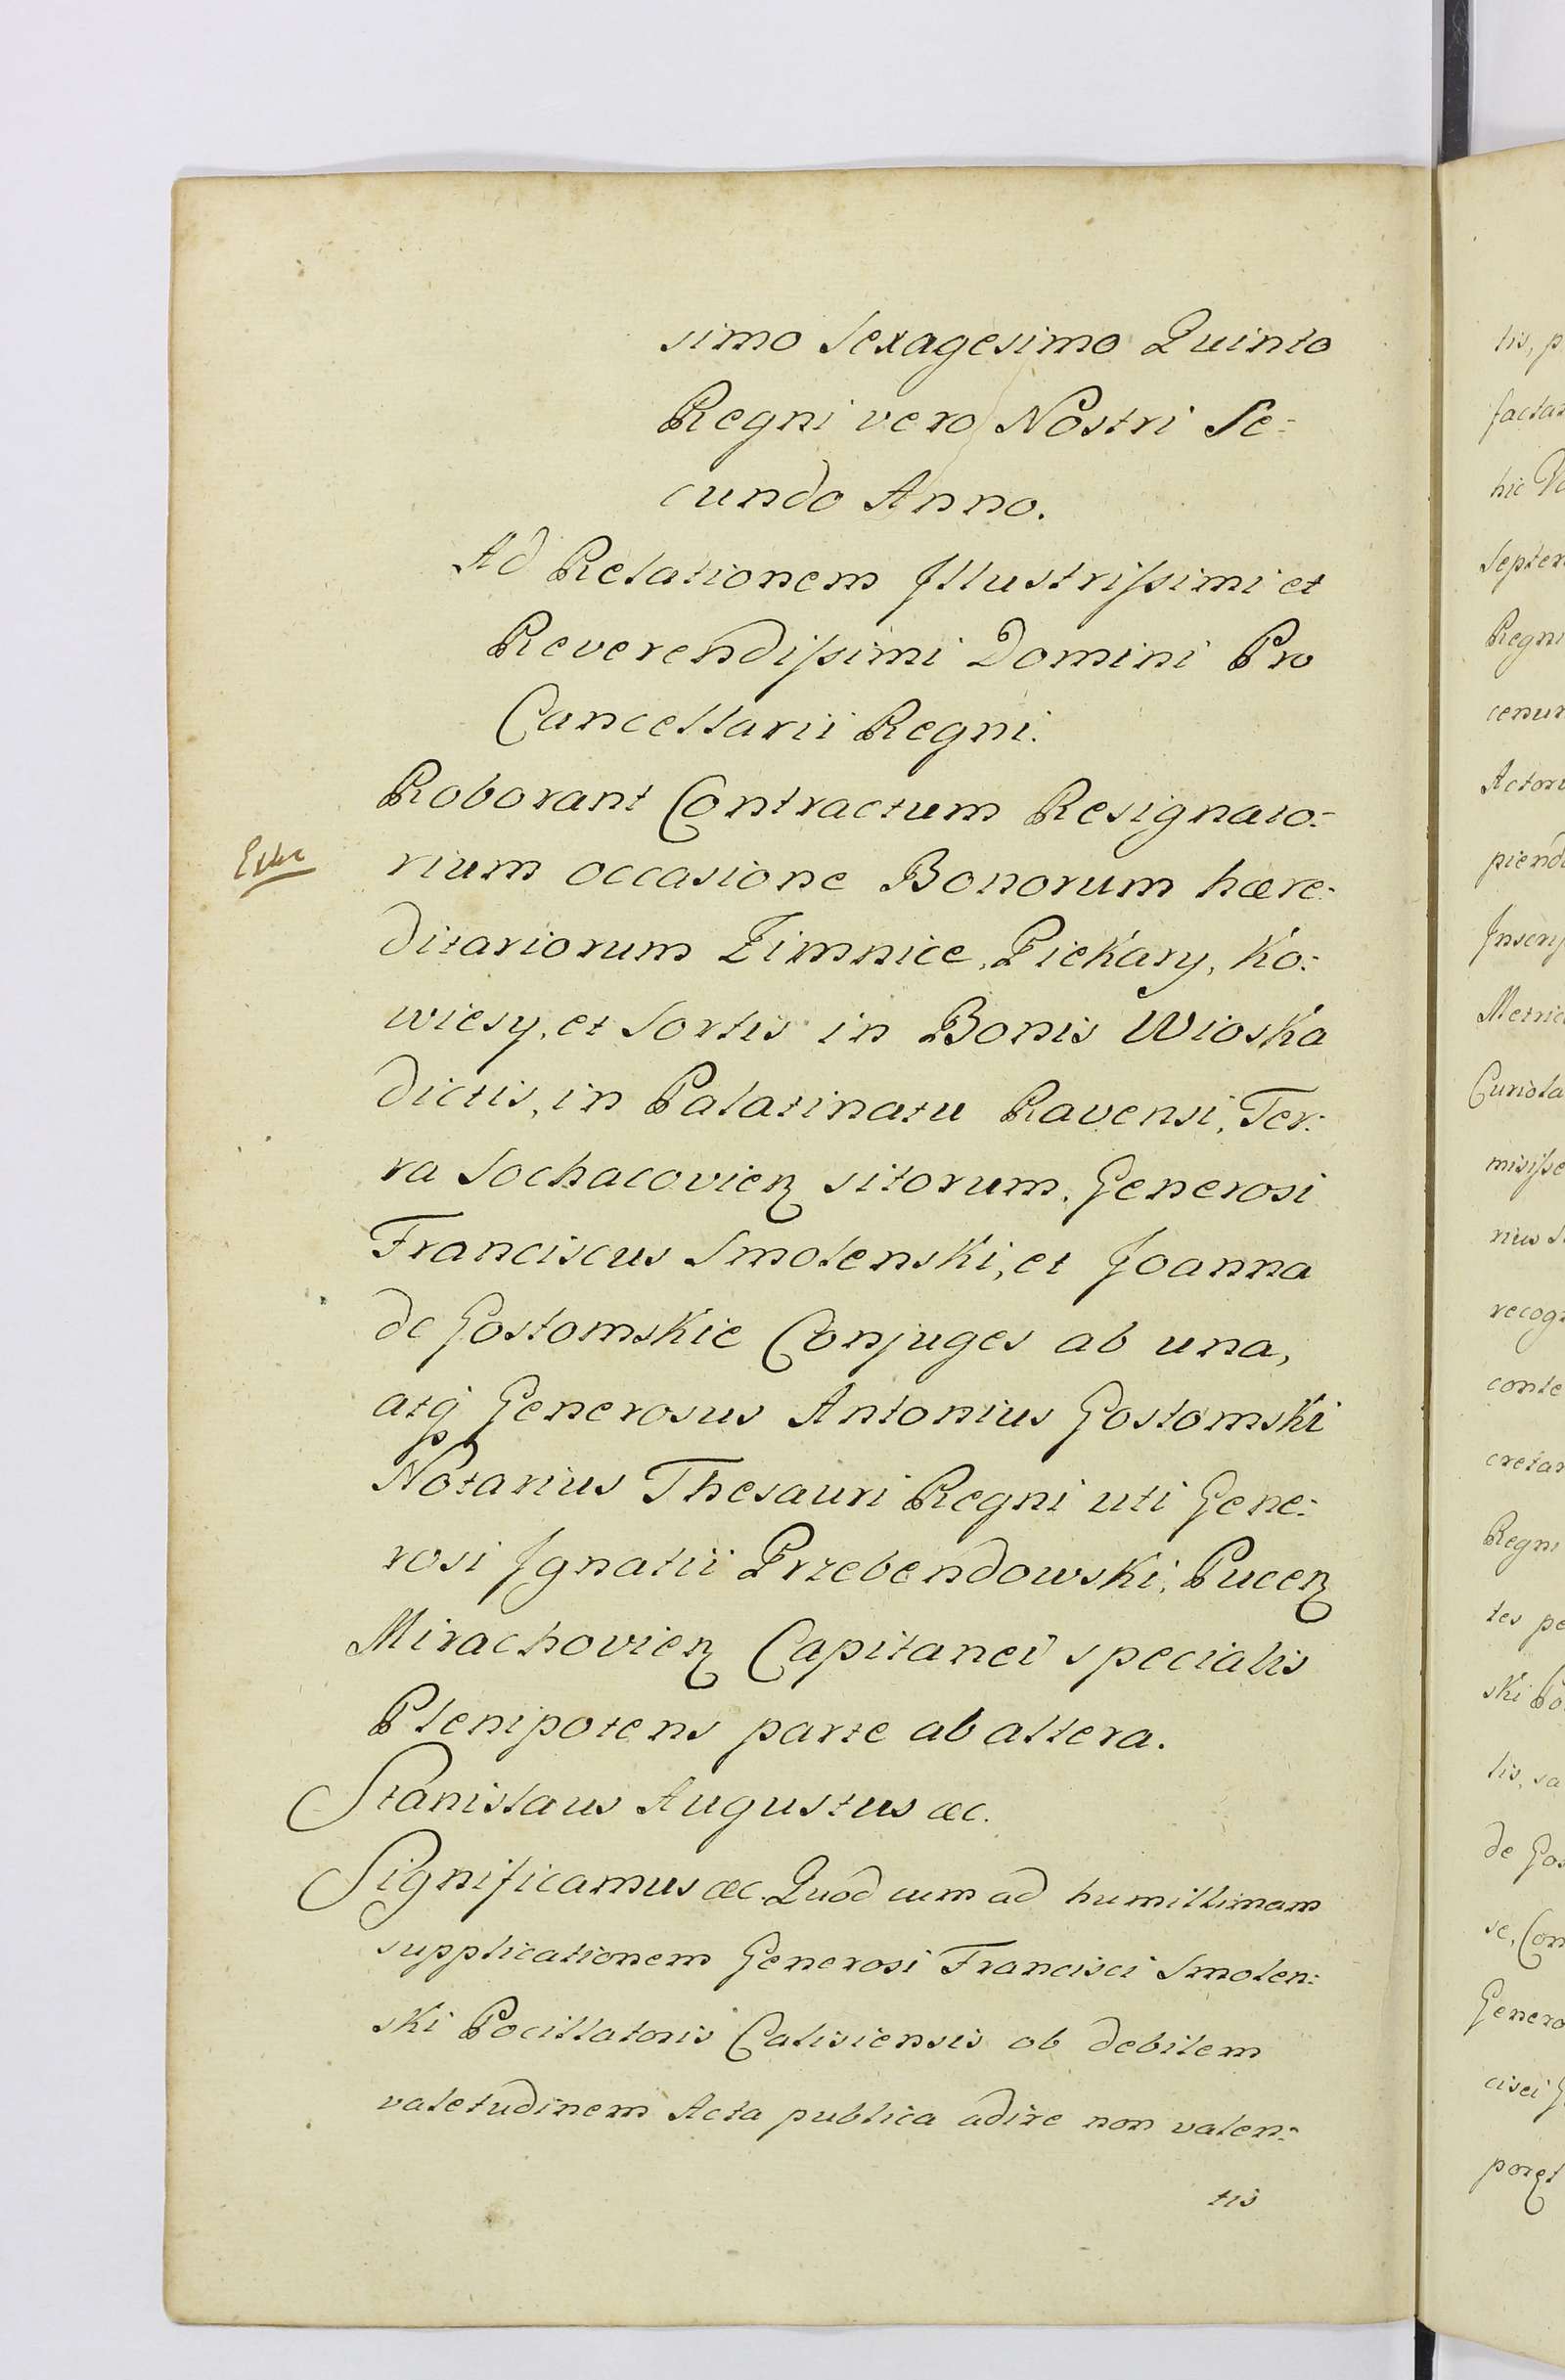 simo Sexagesimo Quinto
Regni vero Nostri Se=
cundo Anno.
Ad Relationem Illustrissimi et
Reverendissimi Domini Pro
Cancellarii Regni.
Roborant Contractum Resignato=
rium occasione Bonorum hære=
ditariorum Zimnice, Piekary, Ko=
wiesy, et Sortis in Bonis Wioska
dictis, in Palatinatu Ravensi, Ter=
ra Sochacovieñ sitorum. Generosi
Franciscus Smolenski, et Joanna
de Gostomskie Conjuges ab una,
atq Generosus Antonius Gostomski
Notarius Thesauri Regni uti Gene=
rosi Ignatii Przebendowski, Puceñ
Mirachovieñ Capitanei specialis
Plenipotens parte ab altera.
Stanislaus Augustus æc.
Significamus æc. Quod cum ad humillimam
supplicationem Generosi Francisci Smolen=
ski Pocillatoris Calisiensis ob debilem
valetudinem Acta publica adire non valen=
tis
tis, p
factar
hic
Septem
Regni
Actor
piend
Inscrip
Metric
misisse
nius S
recog
conte
cretar
Regni
tes pe
ski Po
lis, sa
de Gos
se, Con
Genero
cisci